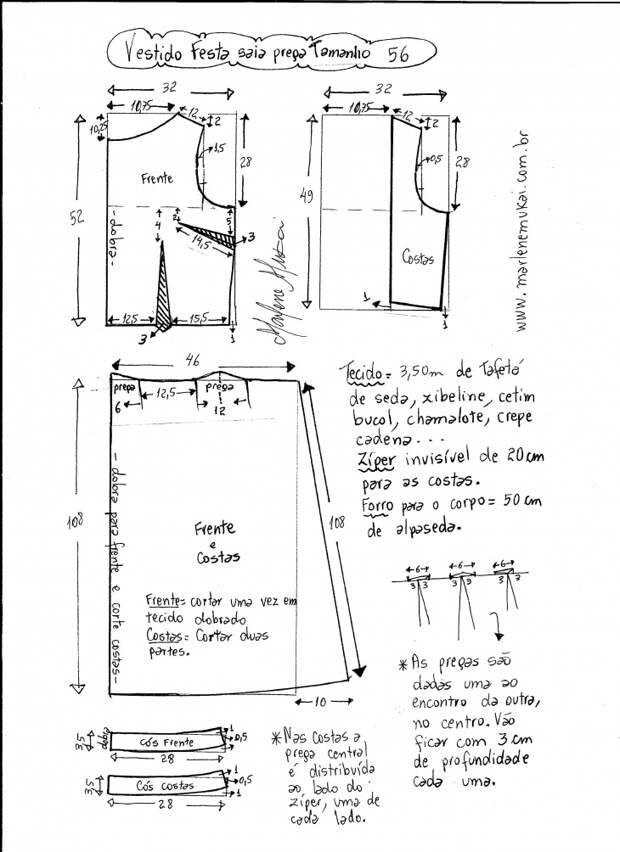 Vestido Festa saia prega Tamanho 56
32
10,75
12
2
10,25
1,5
28
Frente
52
4
2
5
14,5
3
- dobra -
12,5
15,5
3
1
Marlene Mukai
32
10,75
12
2
0,5
28
49
Costas
1
1
www.marlenemukai.com.br
46
prega
6
12,5
prega
12
108
- dobra para frente e corte costas -
Frente
e
Costas
108
Frente = cortar uma vez em
tecido dobrado
Costas = Cortar duas
partes.
10
Tecido = 3,50m de Tafetá
de seda, xibeline, cetim
bucol, chamalote, crepe
cadena...
Zíper invisível de 20cm
para as costas.
Forro para o corpo = 50 cm
de alpaseda.
6
6
6
3 3
3 3
3 3
*As pregas são
dadas uma ao
encontro da outra,
no centro. Vão
ficar com 3 cm
de profundidade
cada uma.
3,5
dobra
Cós Frente
1
0,5
1
28
3,5
Cós costas
1
0,5
1
28
*Nas Costas a
prega central
é distribuída
ao lado do
zíper, uma de
cada lado.